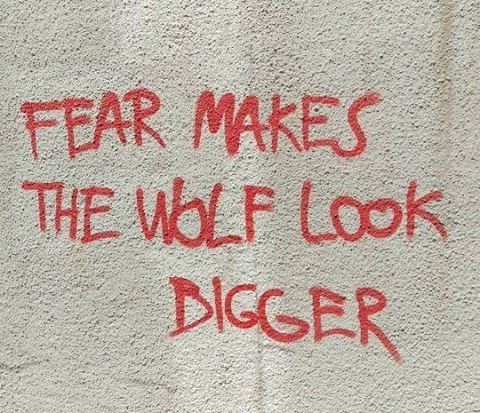 FEAR MAKES
THE WOLF LOOK
BIGGER